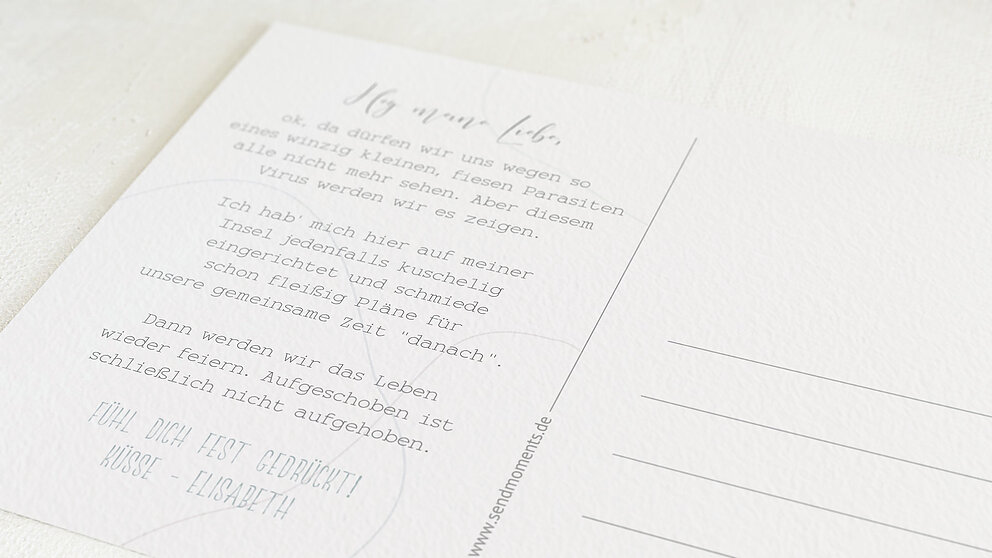 Hey meine Liebe,
ok, da dürfen wir uns wegen so
eines winzig kleinen, fiesen Parasiten
alle nicht mehr sehen. Aber diesem
Virus werden wir es zeigen.
Ich hab' mich hier auf meiner
Insel jedenfalls kuschelig
eingerichtet und schmiede
schon fleißig Pläne für
unsere gemeinsame Zeit "danach".
Dann werden wir das Leben
wieder feiern. Aufgeschoben ist
schließlich nicht aufgehoben.
FÜHL DICH FEST GEDRÜCKT!
KÜSSE - ELISABETH
www.sendmoments.de